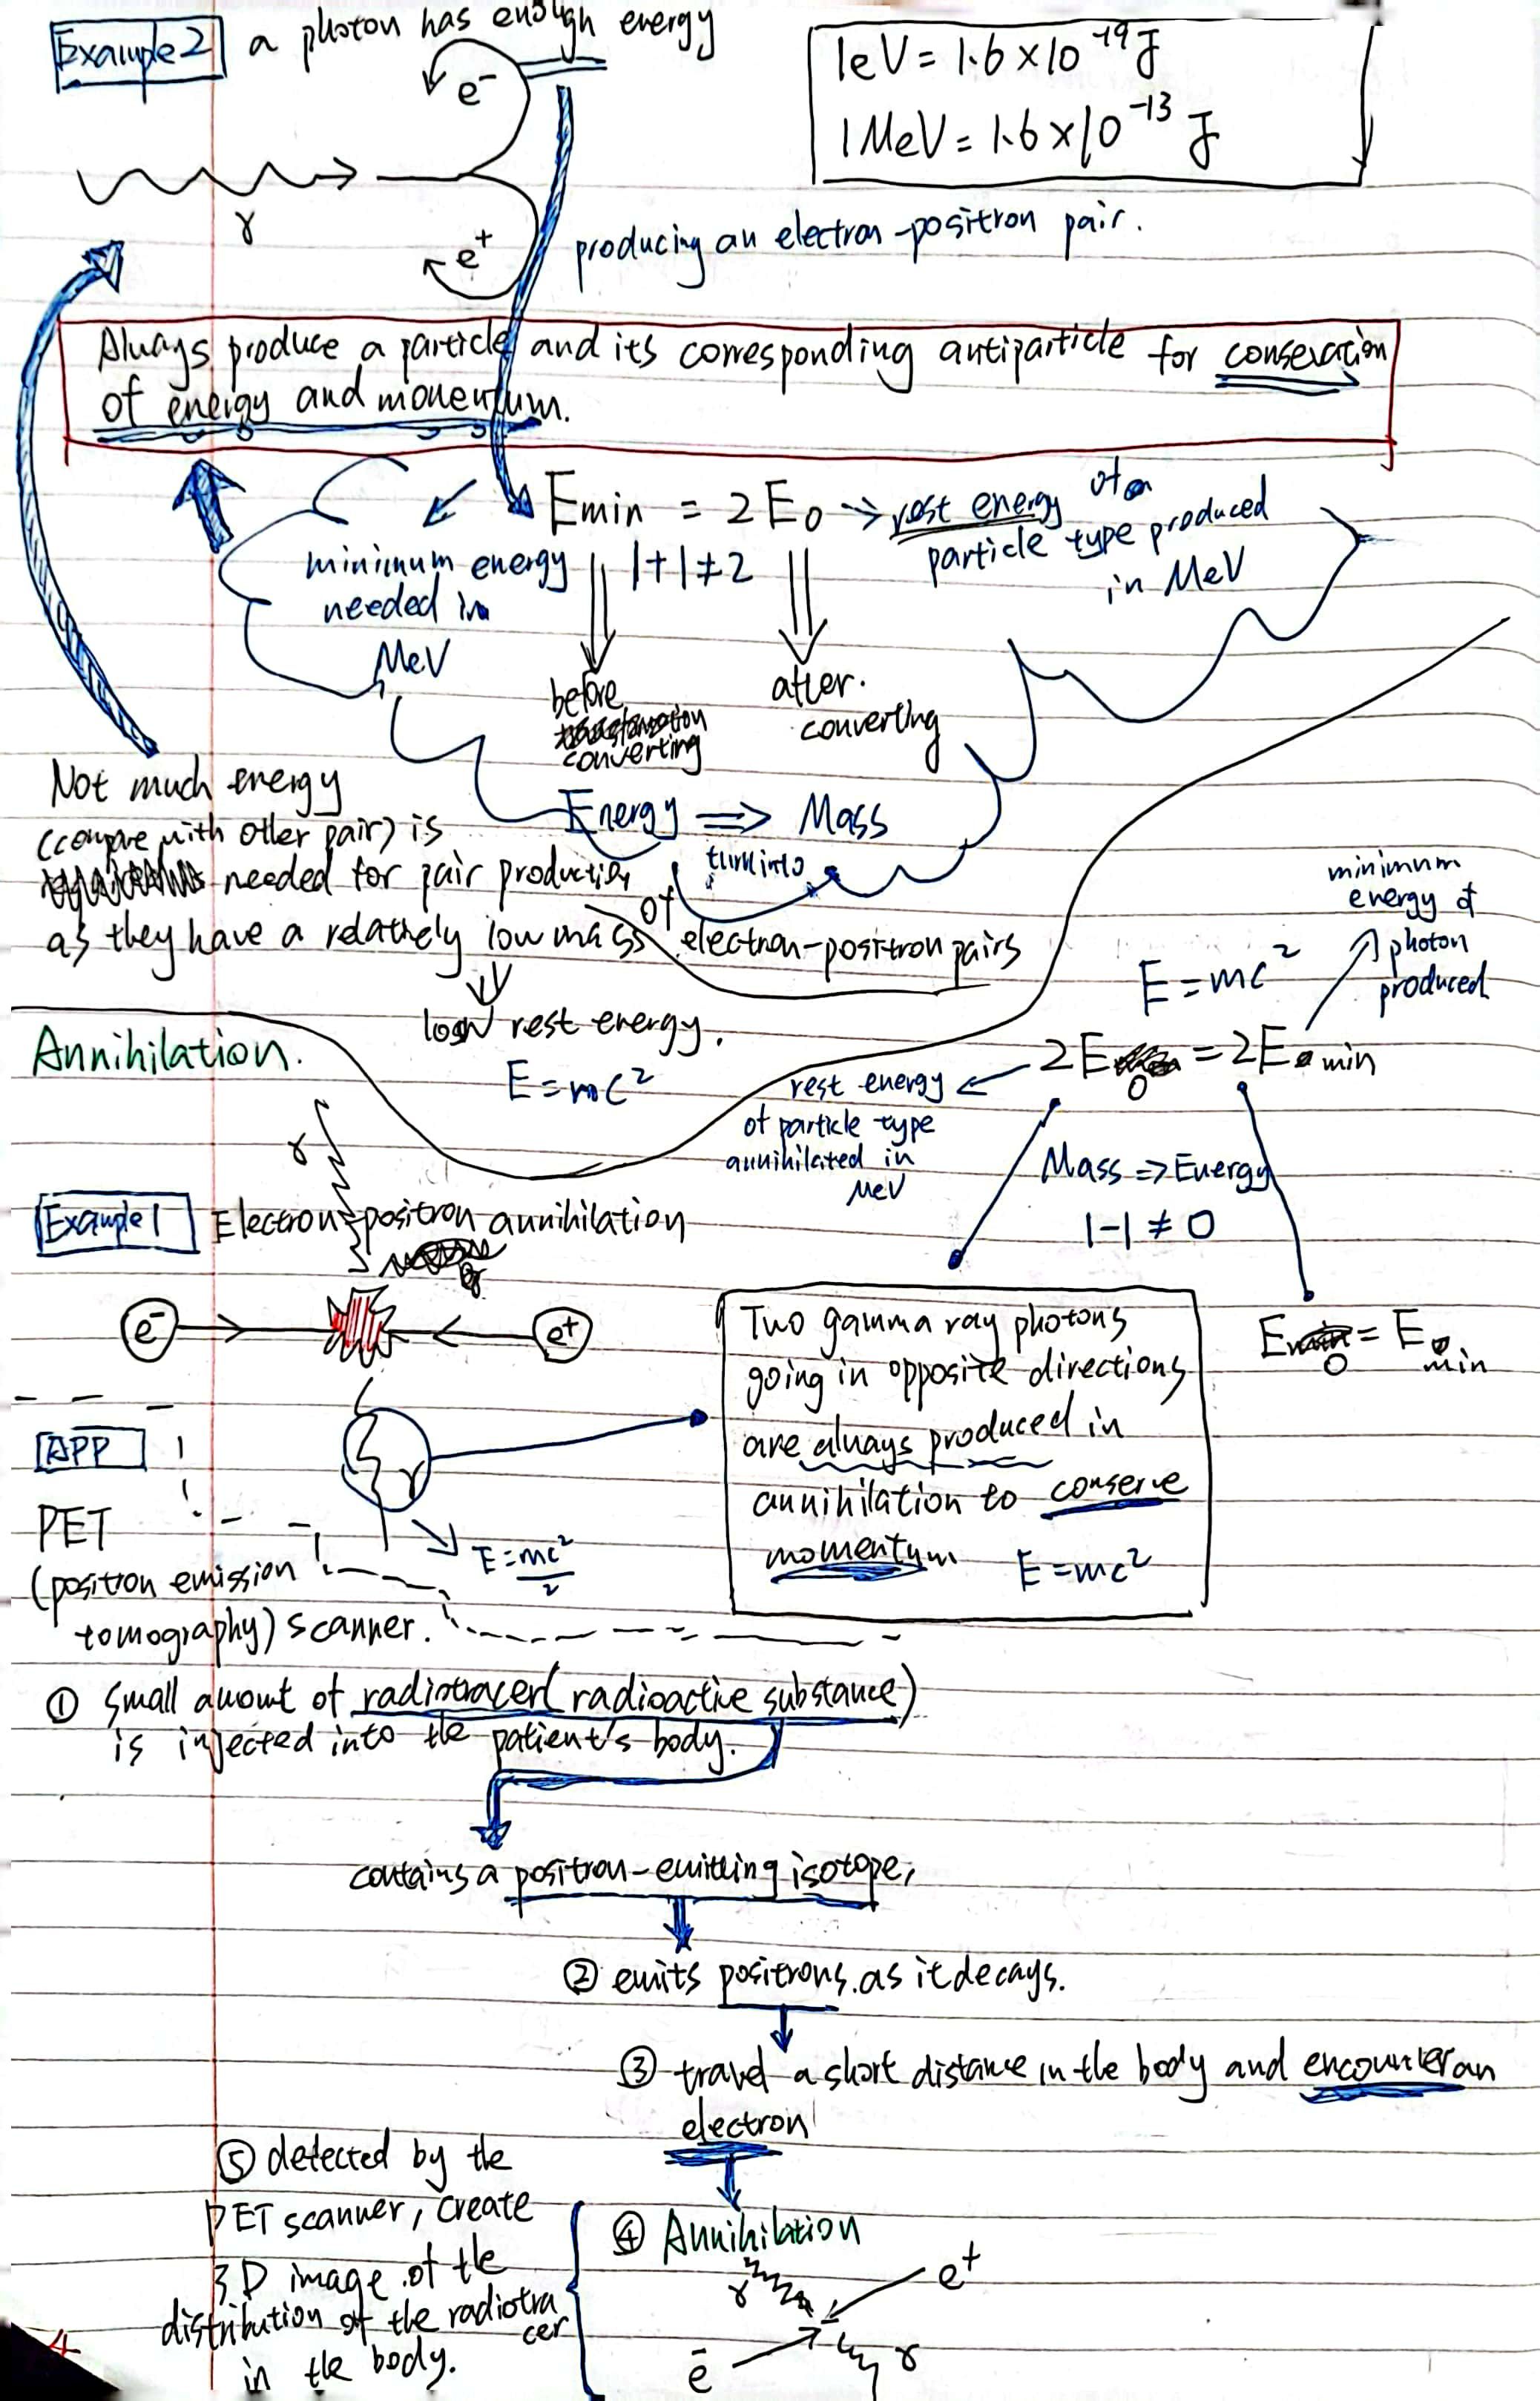 Example 2 a photon has enough energy
1eV = 1.6 × 10⁻¹⁹ J
1 MeV = 1.6 × 10⁻¹³ J
e⁻
γ
e⁺
producing an electron-positron pair.
Always produce a particle and its corresponding antiparticle for conseration
of energy and momentum.
Emin = 2E₀ → rest energy of a
particle type produced
in MeV
minimum energy
needed in
MeV
1+1≠2
before
converting
after.
converting
Energy ⇒ Mass
turn into
Not much energy
(compare with other pair) is
needed for pair production
as they have a relatively low mass
of
electron-positron pairs
low rest energy.
E = mc²
minimum
energy of
photon
produced
E = mc²
2E₀ = 2E min
rest energy
of particle type
annihilated in
MeV
Mass ⇒ Energy
1-1 ≠ 0
E₀ = E min
Annihilation.
γ
Example 1 Electron-positron annihilation
e⁻
e⁺
γ
E = mc²/2
Two gamma ray photons
going in opposite directions
are always produced in
annihilation to conserve
momentum E = mc²
APP
PET
(position emission
tomography) scanner.
① small amount of radiotracer (radioactive substance)
is injected into the patient's body.
contains a positron-emitting isotope,
② emits positrons. as it decays.
③ travel a short distance in the body and encounter an
electron
④ Annihilation
γ
e⁺
e⁻
γ
⑤ detected by the
PET scanner, create
3D image of the
distribution of the radiotra
cer
in the body.